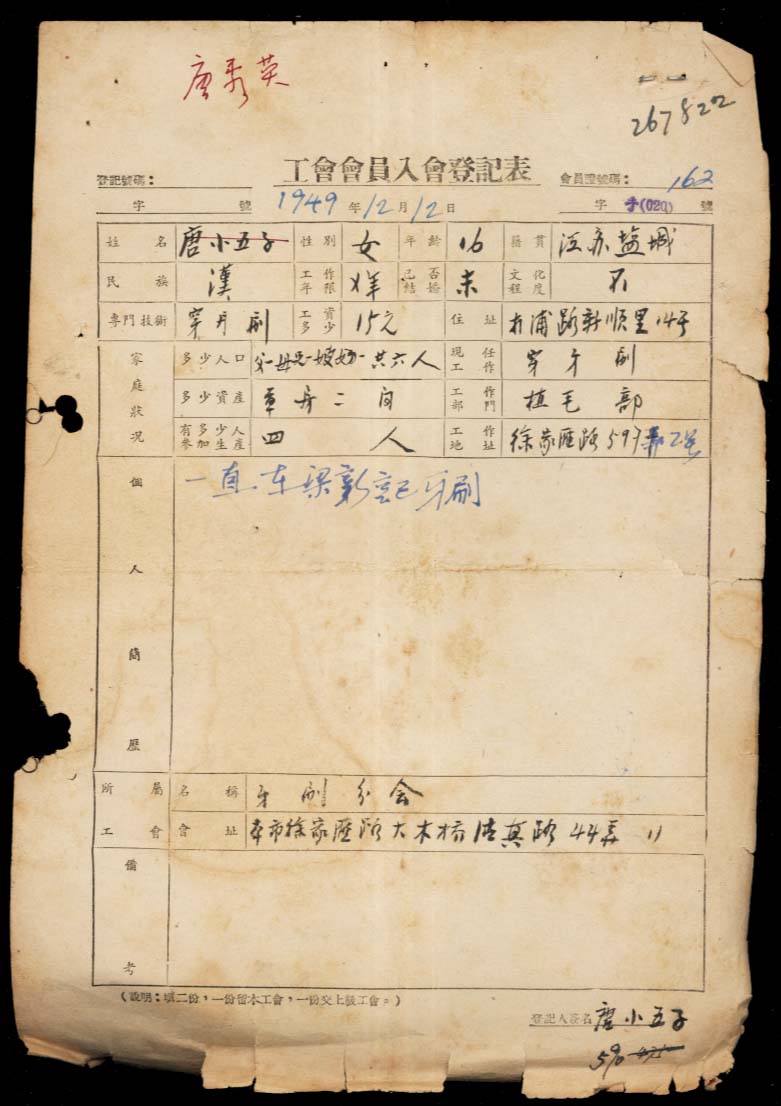 唐秀英
267822
工會會員入會登記表
登記號碼：
會員證號碼：162
字 號
1949年12月12日
字 手(020) 號
姓名 唐小五子 性別 女 年齡 16 籍貫 江苏盐城
民族 漢 工作年限 半 已否結婚 未 文化程度 不
專門技術 穿牙刷 工資多少 15元 住址 打浦路新順里14号
家庭狀況
多少人口 父母兄嫂 共六人 現任工作 穿牙刷
多少資產 草房二间 工作部門 植毛部
有多少人參加生產 四人 工作地址 徐家匯路597弄2号
個人簡歷
一直在梁新記牙刷
所屬工會
名稱 牙刷分会
會址 本市徐家匯路大木桥 路44弄11
備考
(說明：填二份，一份留本工會，一份交上級工會。)
登記人簽名 唐小五子
590